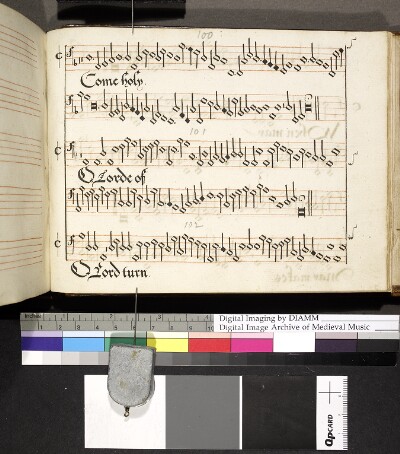 100
Come holy.
101
O Lorde of
102
O Lord turn
Inches 1 2 3 4 5 6 7 8
Digital Imaging by DIAMM
Digital Image Archive of Medieval Music
QPCARD